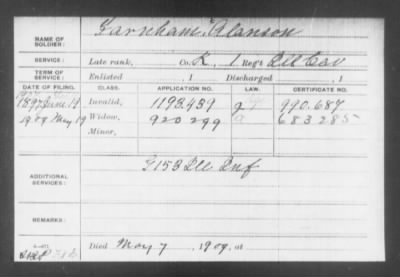 NAME OF SOLDIER: Farnham, Alanson
SERVICE: Late rank, Co. K, 1 Reg't Ill Cav
TERM OF SERVICE: Enlisted , 1 Discharged , 1
DATE OF FILING. CLASS. APPLICATION NO. LAW. CERTIFICATE NO.
1897 June 19 Invalid, 1193459 g 990.687
1909 May 19 Widow, 920299 a 683285
Minor,
ADDITIONAL SERVICES: G 153 Ill Inf
REMARKS:
Died May 7, 1909, at